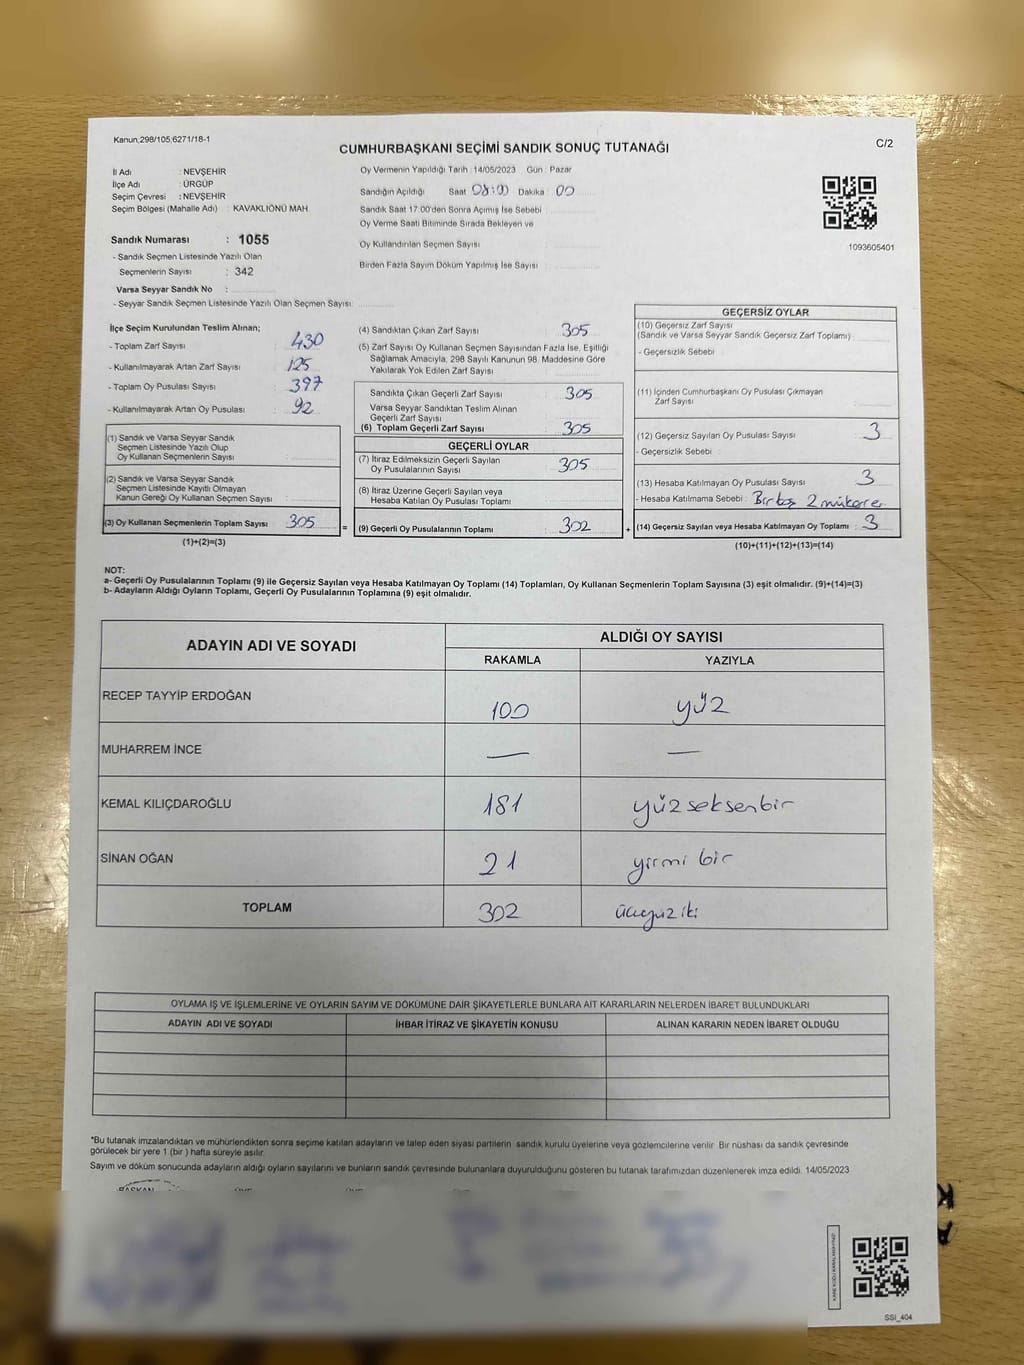 Kanun;298/105;6271/18-1
C/2
CUMHURBAŞKANI SEÇİMİ SANDIK SONUÇ TUTANAĞI
İl Adı : NEVŞEHİR
İlçe Adı : ÜRGÜP
Seçim Çevresi : NEVŞEHİR
Seçim Bölgesi (Mahalle Adı) : KAVAKLIÖNÜ MAH.
Sandık Numarası : 1055
- Sandık Seçmen Listesinde Yazılı Olan
Seçmenlerin Sayısı : 342
Varsa Seyyar Sandık No :
- Seyyar Sandık Seçmen Listesinde Yazılı Olan Seçmen Sayısı:
Oy Vermenin Yapıldığı Tarih :14/05/2023 Gün : Pazar
Sandığın Açıldığı Saat 08:00 Dakika : 00
Sandık Saat 17:00'den Sonra Açımış İse Sebebi :
Oy Verme Saati Bitiminde Sırada Bekleyen ve
Oy Kullandırılan Seçmen Sayısı :
Birden Fazla Sayım Döküm Yapılmış İse Sayısı :
1093605401
İlçe Seçim Kurulundan Teslim Alınan;
- Toplam Zarf Sayısı : 430
- Kullanılmayarak Artan Zarf Sayısı : 125
- Toplam Oy Pusulası Sayısı : 397
- Kullanılmayarak Artan Oy Pusulası : 92
(1) Sandık ve Varsa Seyyar Sandık
Seçmen Listesinde Yazılı Olup
Oy Kullanan Seçmenlerin Sayısı :
(2) Sandık ve Varsa Seyyar Sandık
Seçmen Listesinde Kayıtlı Olmayan
Kanun Gereği Oy Kullanan Seçmen Sayısı :
(3) Oy Kullanan Seçmenlerin Toplam Sayısı : 305
(1)+(2)=(3)
(4) Sandıktan Çıkan Zarf Sayısı : 305
(5) Zarf Sayısı Oy Kullanan Seçmen Sayısından Fazla İse, Eşitliği
Sağlamak Amacıyla, 298 Sayılı Kanunun 98. Maddesine Göre
Yakılarak Yok Edilen Zarf Sayısı :
Sandıkta Çıkan Geçerli Zarf Sayısı : 305
Varsa Seyyar Sandıktan Teslim Alınan
Geçerli Zarf Sayısı :
(6) Toplam Geçerli Zarf Sayısı : 305
GEÇERLİ OYLAR
(7) İtiraz Edilmeksizin Geçerli Sayılan
Oy Pusulalarının Sayısı : 305
(8) İtiraz Üzerine Geçerli Sayılan veya
Hesaba Katılan Oy Pusulası Toplamı :
= (9) Geçerli Oy Pusulalarının Toplamı : 302 +
GEÇERSİZ OYLAR
(10) Geçersiz Zarf Sayısı
(Sandık ve Varsa Seyyar Sandık Geçersiz Zarf Toplamı) :
- Geçersizlik Sebebi :
(11) İçinden Cumhurbaşkanı Oy Pusulası Çıkmayan
Zarf Sayısı :
(12) Geçersiz Sayılan Oy Pusulası Sayısı : 3
- Geçersizlik Sebebi :
(13) Hesaba Katılmayan Oy Pusulası Sayısı : 3
- Hesaba Katılmama Sebebi : Bir boş 2 mükerrer
(14) Geçersiz Sayılan veya Hesaba Katılmayan Oy Toplamı : 3
(10)+(11)+(12)+(13)=(14)
NOT:
a- Geçerli Oy Pusulalarının Toplamı (9) ile Geçersiz Sayılan veya Hesaba Katılmayan Oy Toplamı (14) Toplamları, Oy Kullanan Seçmenlerin Toplam Sayısına (3) eşit olmalıdır. (9)+(14)=(3)
b- Adayların Aldığı Oyların Toplamı, Geçerli Oy Pusulalarının Toplamına (9) eşit olmalıdır.
ADAYIN ADI VE SOYADI ALDIĞI OY SAYISI
RAKAMLA YAZIYLA
RECEP TAYYİP ERDOĞAN 100 yüz
MUHARREM İNCE — —
KEMAL KILIÇDAROĞLU 181 yüzseksenbir
SİNAN OĞAN 21 yirmi bir
TOPLAM 302 üçyüz iki
OYLAMA İŞ VE İŞLEMLERİNE VE OYLARIN SAYIM VE DÖKÜMÜNE DAİR ŞİKAYETLERLE BUNLARA AİT KARARLARIN NELERDEN İBARET BULUNDUKLARI
ADAYIN ADI VE SOYADI İHBAR İTİRAZ VE ŞİKAYETİN KONUSU ALINAN KARARIN NEDEN İBARET OLDUĞU
*Bu tutanak imzalandıktan ve mühürlendikten sonra seçime katılan adayların ve talep eden siyasi partilerin sandık kurulu üyelerine veya gözlemcilerine verilir. Bir nüshası da sandık çevresinde
görülecek bir yere 1 (bir ) hafta süreyle asılır.
Sayım ve döküm sonucunda adayların aldığı oyların sayılarını ve bunların sandık çevresinde bulunanlara duyurulduğunu gösteren bu tutanak tarafımızdan düzenlenerek imza edildi. 14/05/2023
BAŞKAN
SSI_404